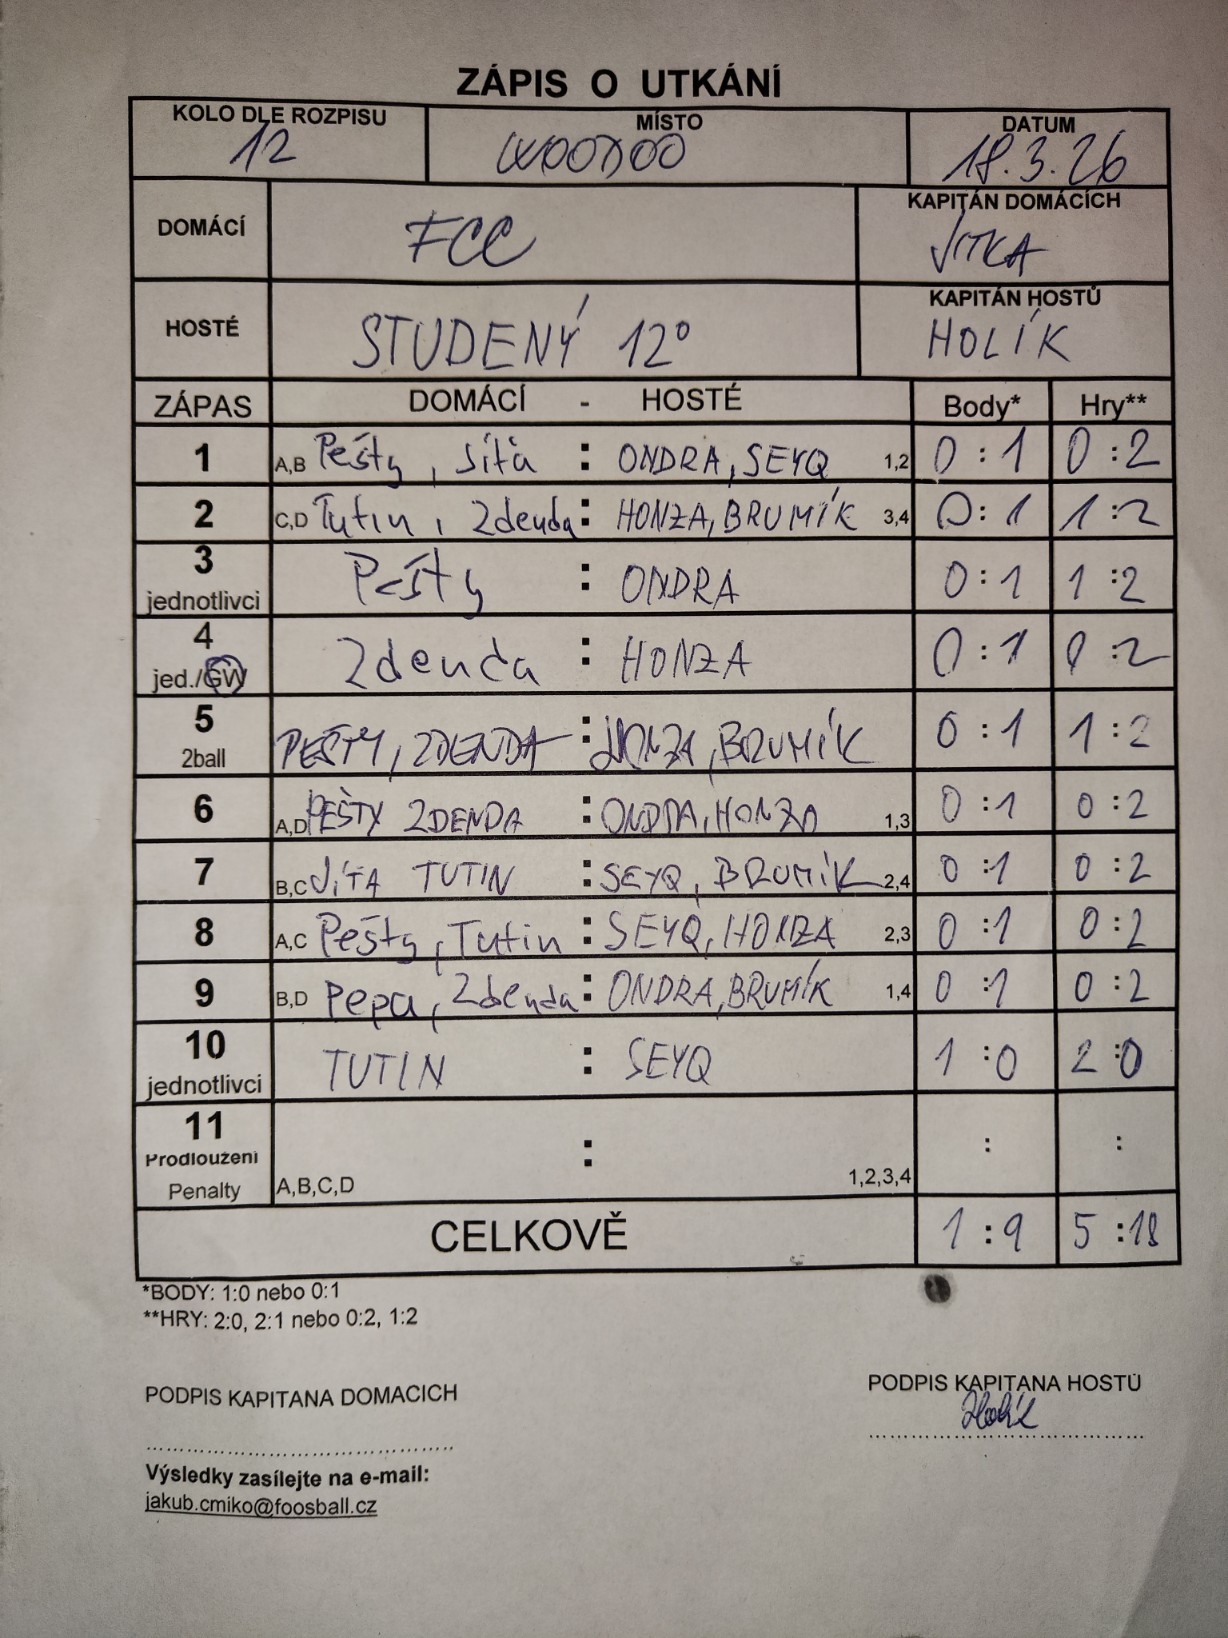 ZÁPIS O UTKÁNÍ
KOLO DLE ROZPISU MÍSTO DATUM
12 WOODOO 18.3.26
DOMÁCÍ FCC KAPITÁN DOMÁCÍCH
JITKA
HOSTÉ STUDENÝ 12° KAPITÁN HOSTŮ
HOLÍK
ZÁPAS DOMÁCÍ - HOSTÉ Body* Hry**
1 A,B Pešty, Jíťa : ONDRA, SEYQ 1,2 0:1 0:2
2 C,D Tutin, Zdenda : HONZA, BRUMÍK 3,4 0:1 1:2
3 jednotlivci Pešty : ONDRA 0:1 1:2
4 jed./GW Zdenda : HONZA 0:1 0:2
5 2ball PEŠTY, ZDENDA : HONZA, BRUMÍK 0:1 1:2
6 A,D PEŠTY ZDENDA : ONDRA, HONZA 1,3 0:1 0:2
7 B,C JÍŤA TUTIN : SEYQ, BRUMÍK 2,4 0:1 0:2
8 A,C Pešty, Tutin : SEYQ, HONZA 2,3 0:1 0:2
9 B,D Pepa, Zdenda : ONDRA, BRUMÍK 1,4 0:1 0:2
10 jednotlivci TUTIN : SEYQ 1:0 2:0
11 Prodloužení Penalty A,B,C,D : 1,2,3,4 : :
CELKOVĚ 1:9 5:18
*BODY: 1:0 nebo 0:1
**HRY: 2:0, 2:1 nebo 0:2, 1:2
PODPIS KAPITANA DOMACICH PODPIS KAPITANA HOSTU
Holík
Výsledky zasílejte na e-mail:
jakub.cmiko@foosball.cz